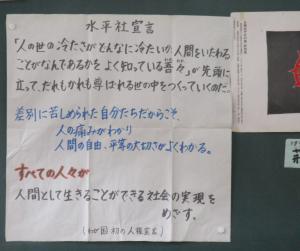 水平社宣言
「人の世の冷たさがどんなに冷たいか人間をいたわる
ことがなんであるかをよく知っている者々」が先頭に
立って、だれもかれも尊ばれる世の中をつくっていくのだ。
差別に苦しめられた自分たちだからこそ、
人の痛みがわかり
人間の自由、平等の大切さがよくわかる。
すべての人々が
人間として生きることができる社会の実現を
めざす。
(わが国初の人権宣言)